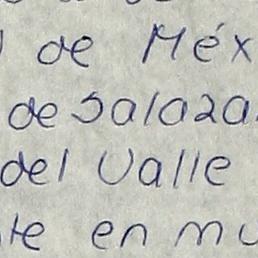 de Méx
de Salaza
del Valle
te en mu